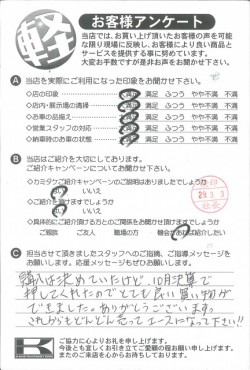 軽
お客様アンケート
当店では、お買い上げ頂いたお客様の声を可能
な限り現場に反映し、お客様により良い商品と
サービスを提供する事に努めています。
大変お手数ですが是非お声をお聞かせ下さい。
A 当店を実際にご利用になった印象をお聞かせ下さい。
・店の印象 満足 ふつう やや不満 不満
・店内・展示場の清掃 満足 ふつう やや不満 不満
・お車の品揃え 満足 ふつう やや不満 不満
・営業スタッフの対応 満足 ふつう やや不満 不満
・納車時のお車の状態 満足 ふつう やや不満 不満
B 当店はご紹介を大切にしております。
ご紹介キャンペーンについてお聞かせ下さい。
・カミタケご紹介キャンペーンのご説明はありましたでしょうか
はい いいえ
・ご紹介を頂けますでしょうか
はい いいえ
・具体的にご紹介頂ける方とのご関係をお聞かせ頂けますでしょうか
ご親族 ご友人 職場の方 機会があれば紹介したい
29.3.3
C 担当させて頂きましたスタッフへのご指摘、ご指導メッセージを
お願いします。応援メッセージもぜひお願いします。
購入は決めていたけど、10月決算で
押してくれたのでとても良い買い物が
できました。ありがとうございます。
これからもどんどん売ってエースになって下さい!!
K
ご協力に心よりお礼を申し上げます。
今後とも宜しくお引き立てご愛顧の程お願い申し上げます。
またのご来店を心からお待ちしております。